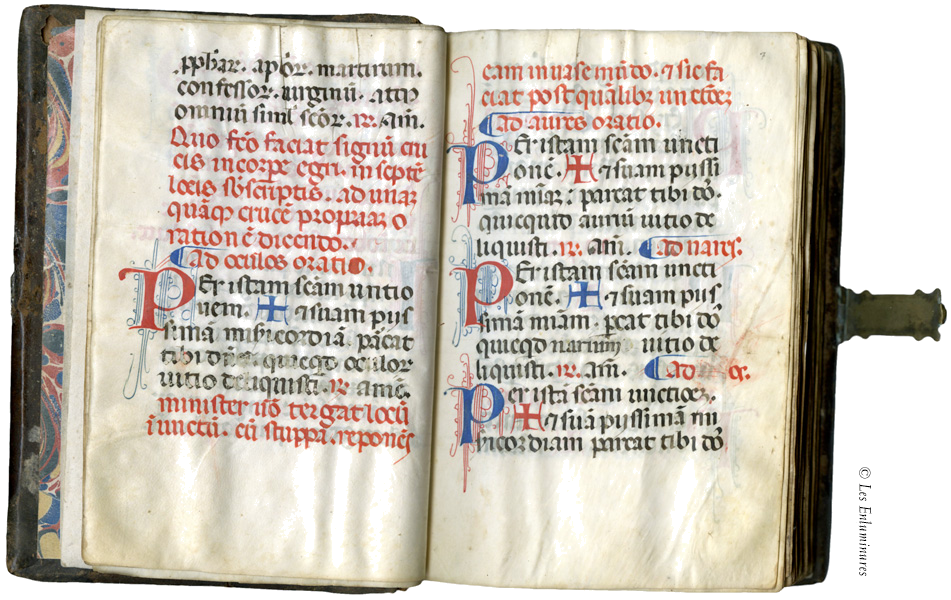 .pphar. aplor. martirum.
confessor. uirginū. atq
omniū simĺ scōr. ℟. am̄.
Quo fcō faciat signū cru
cis in corpe egri. in septē
locis sb̄scriptis. ad unā
quāq crucē propriaʒ o
rationē dicendo.
Ad oculos oratio.
Per istam scām untio
nem. ✠ ⁊ suam pus
simā misericordiā. parcat
tibi dn̄s quicqd oculoꝝ
uitio deliquisti. ℟ amē.
minister uō tergat locū
īunctū. cū stuppa. reponēs
eam in uase mūdo. ⁊ sic fa
ciat post quālibʒ unctōeʒ
Ad aures oratio.
Per istam scām uncti
onē. ✠ ⁊ suam pussi
mā miām. parcat tibi dō.
quicquid auriū uitio de
liquisti. ℟. am̄. Ad nares.
Per istam scām uncti
onē. ✠ ⁊ suam pus
simā miām. pcat tibi dō
quicqd narium uitio de
liquisti. ℟. am̄. Ad
Per istā scām unctioēʒ.
✠ ⁊ suā pussimā mi
sericordiam parcat tibi dō
© Les Enluminures